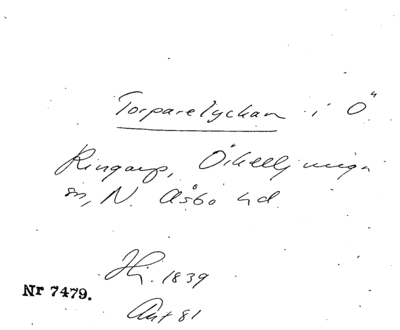 Torparelyckan i Ö
Ringarp, Örkelljunga
sn, N. Åsbo hd.
Hj. 1839
Nr 7479.
Akt 81